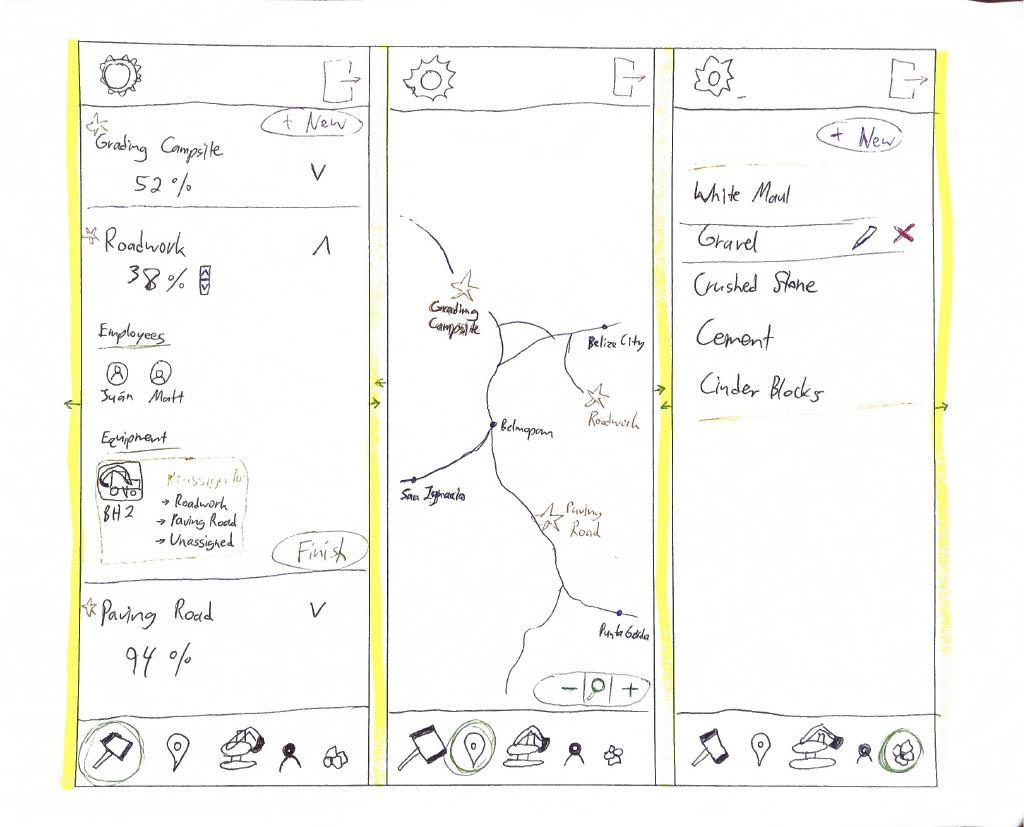 + New
Grading Campsite
52 %
Roadwork
38 %
Employees
Juán Matt
Equipment
Reassign to
BH2
→ Roadwork
→ Paving Road
→ Unassigned
Finish
Paving Road
94 %
Grading
Campsite
Belize City
Roadwork
Belmopan
San Ignacio
Paving
Road
Punta Gorda
− +
+ New
White Maul
Gravel
Crushed Stone
Cement
Cinder Blocks